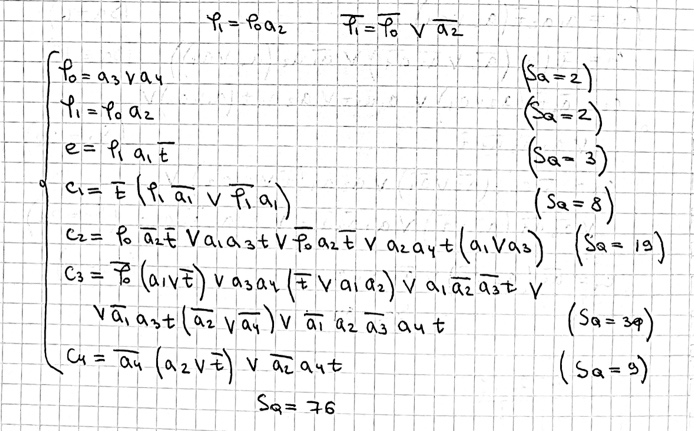 φ₁ = φ₀a₂    φ̅₁ = φ̅₀ ∨ a̅₂
φ₀ = a₃ ∨ a₄    (SQ = 2)
φ₁ = φ₀ a₂    (SQ = 2)
e = φ₁ a₁ t̅    (SQ = 3)
c₁ = t̅ (φ₁ a̅₁ ∨ φ̅₁ a₁)    (SQ = 8)
c₂ = φ₀ a̅₂ t̅ ∨ a₁ a₃ t ∨ φ̅₀ a₂ t̅ ∨ a₂ a₄ t (a₁ ∨ a₃)    (SQ = 19)
c₃ = φ̅₀ (a₁ ∨ t̅) ∨ a₃ a₄ (t̅ ∨ a₁ a₂) ∨ a₁ a̅₂ a̅₃ t ∨
∨ a̅₁ a₃ t (a̅₂ ∨ a̅₄) ∨ a̅₁ a₂ a̅₃ a₄ t
c₄ = a̅₄ (a₂ ∨ t̅) ∨ a̅₂ a₄ t    (SQ = 9)
SQ = 76